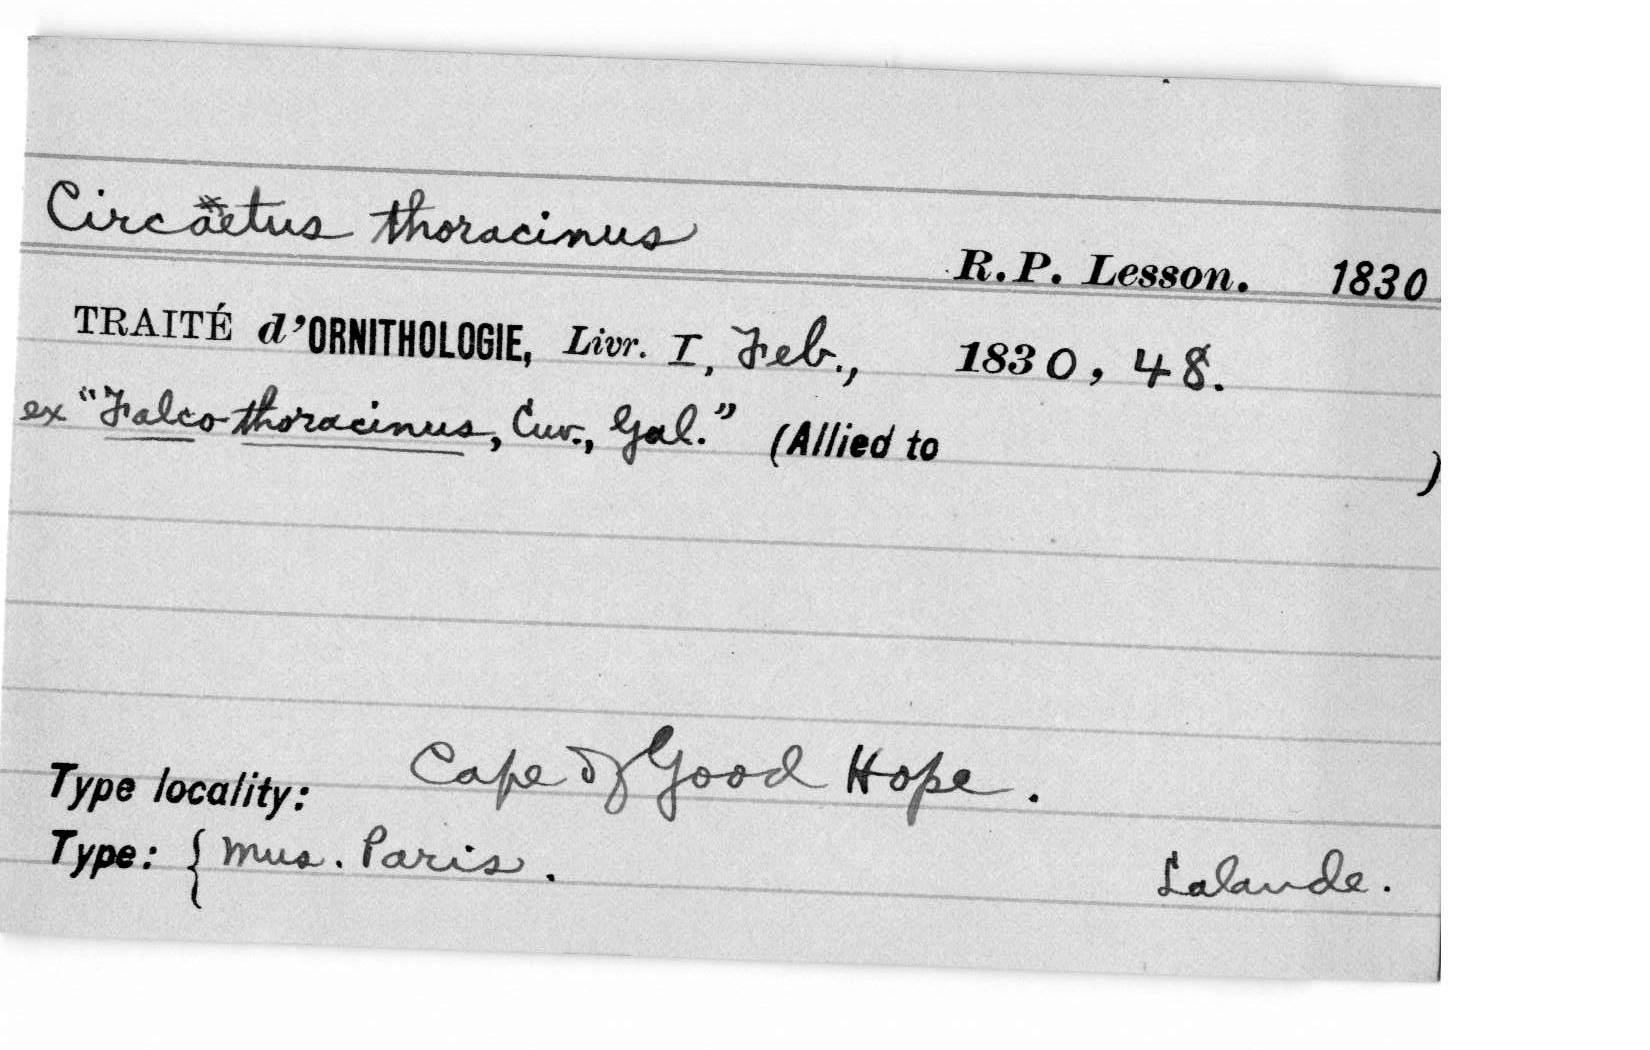 Circäetus thoracinus
R.P. Lesson. 1830
TRAITÉ d'ORNITHOLOGIE, Livr. I, Feb., 1830, 48.
ex "Falco thoracinus, Cuv., Gal." (Allied to )
Type locality: Cape of Good Hope.
Type: { Mus. Paris. Lalande.